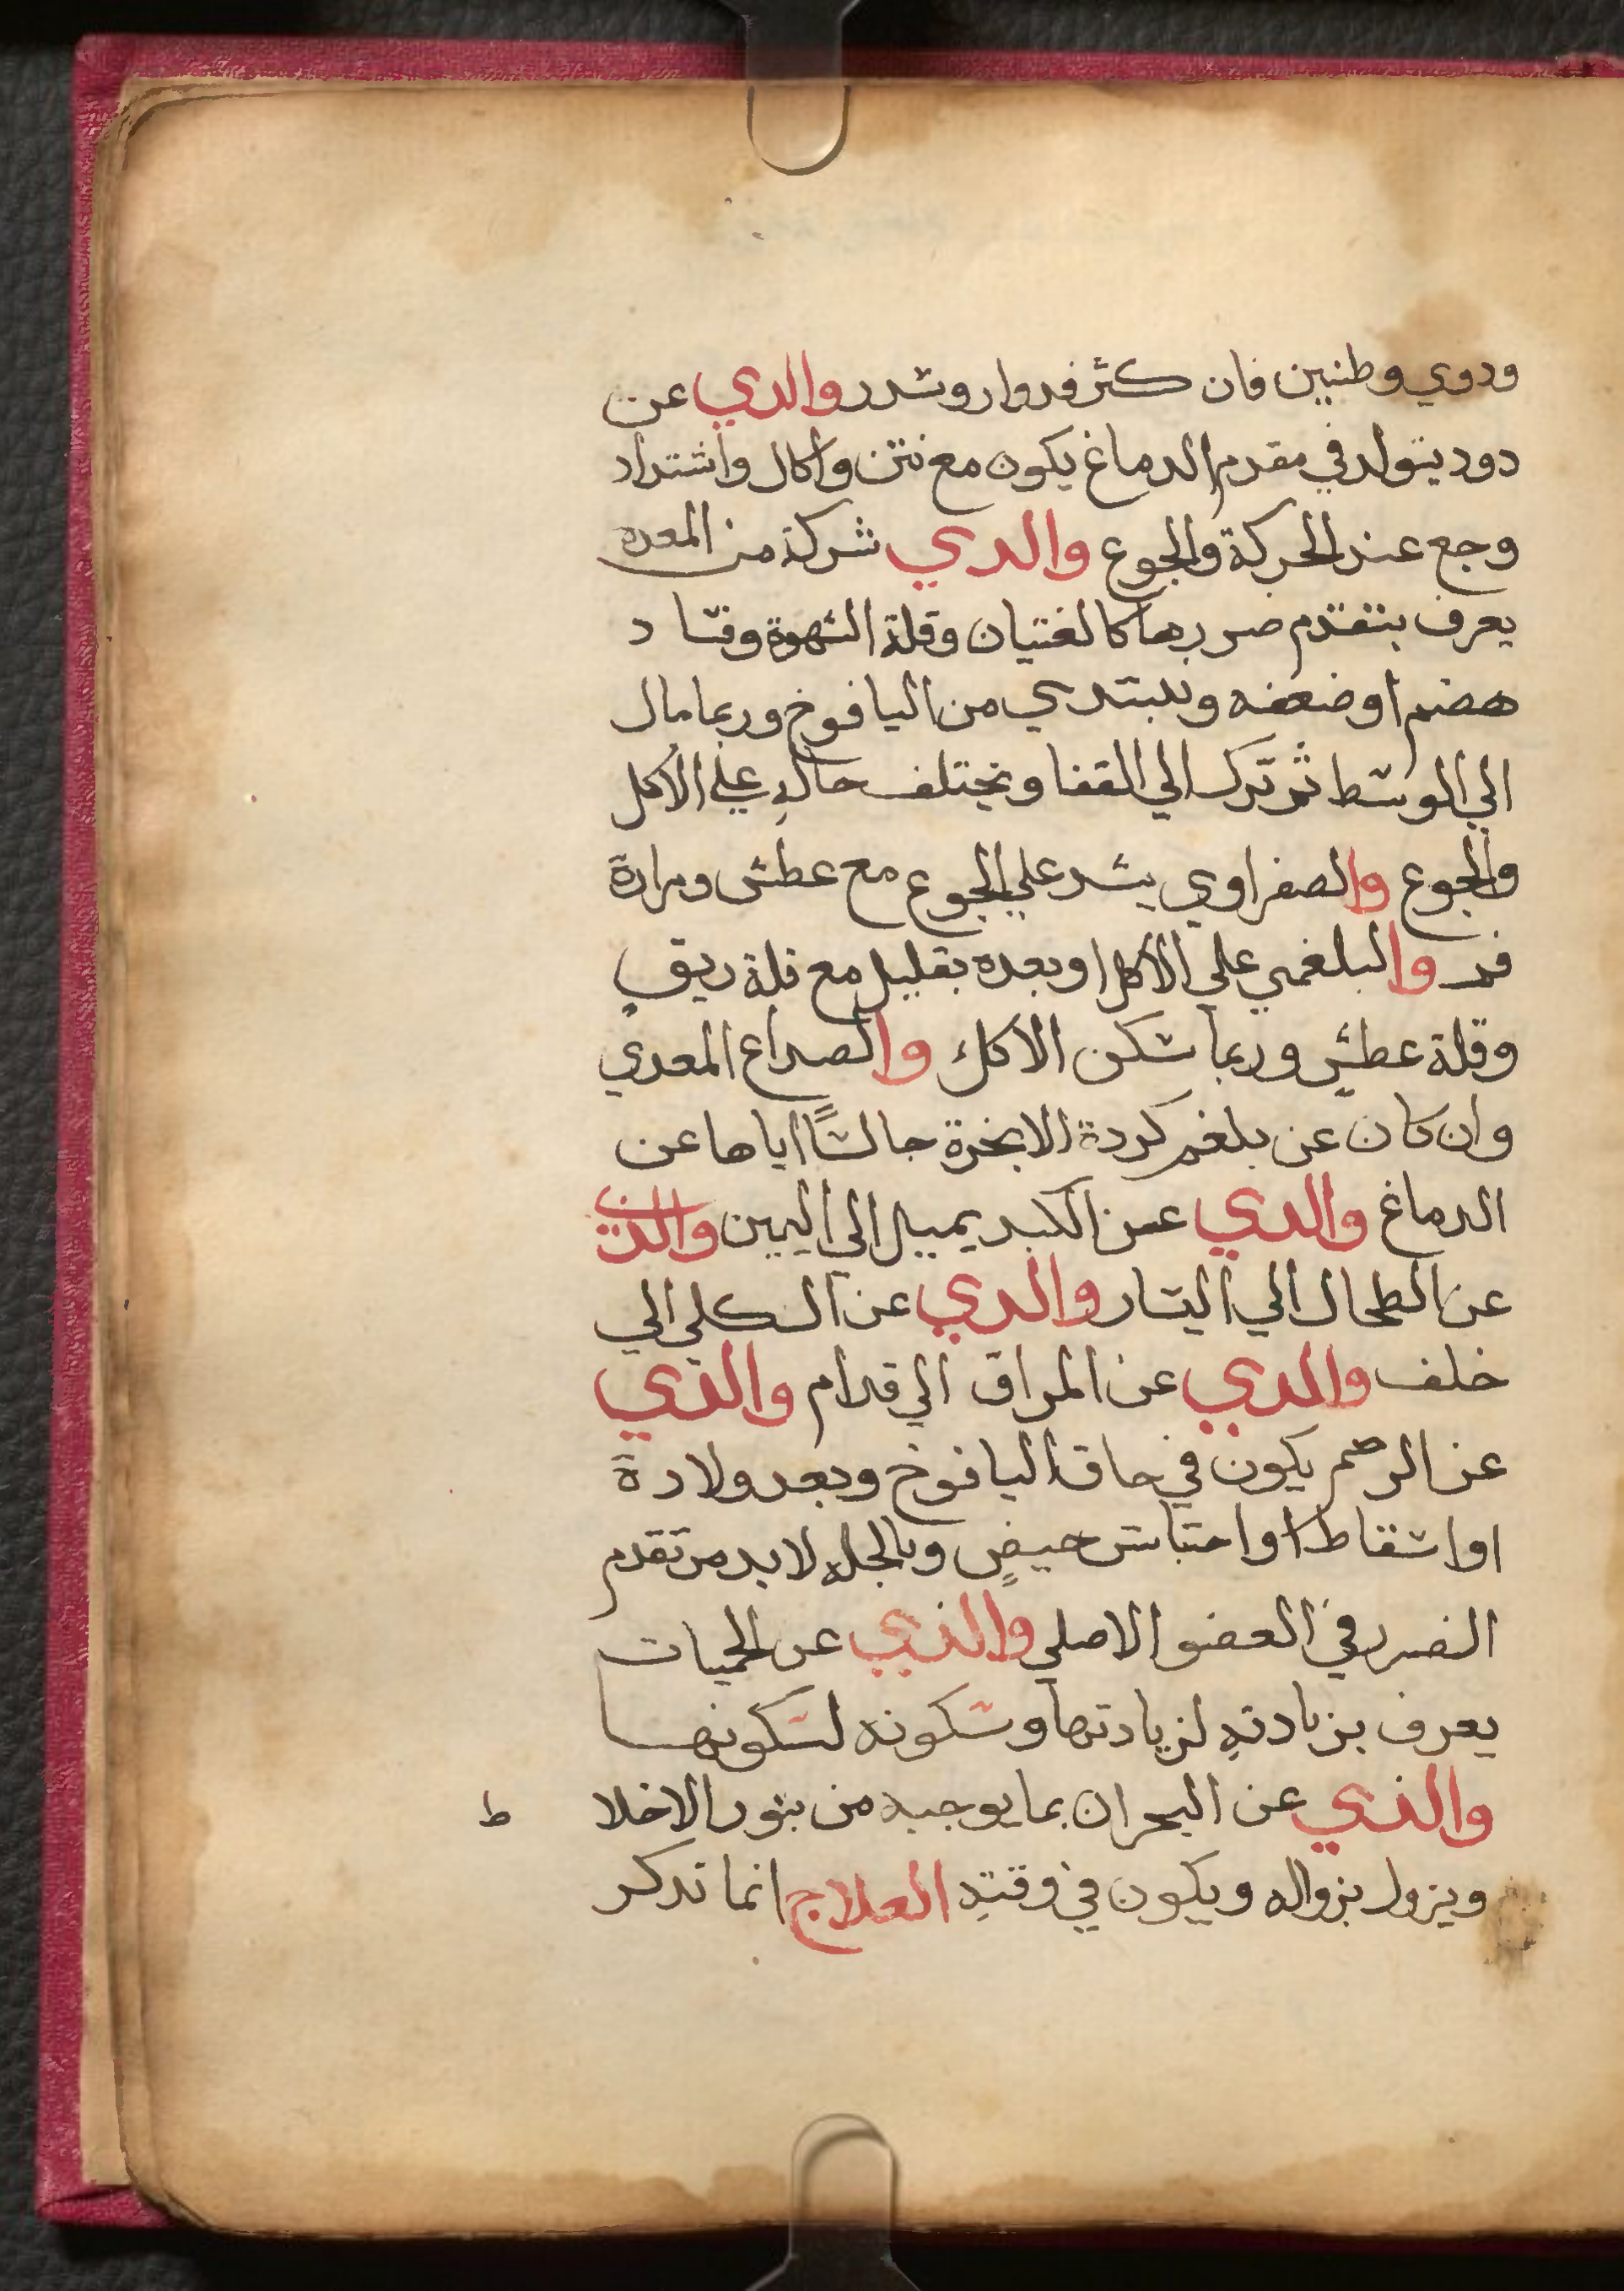 ودوي وطنين فان كثر فدوار وسدر والدي عن
دود يتولد في مقدم الدماغ يكون مع نتن واكال واشتداد
وجع عند الحركة والجوع والدي شركة من المعده
يعرف بتقدم ضررها كالغثيان وقلة الشهوة وفساد
هضم او ضعفه ويبتدي من اليافوخ وربما مال
الي الوسط ثم ترك الي القفا ويختلف حاله علي الاكل
والجوع والصفراوي يشد علي الجوع مع عطش ومرارة
فم والبلغمي علي الاكل او بعده بقليل مع قلة ريق
وقلة عطش وربما سكن الاكل والصداع المعدي
وان كان عن بلغم كردة الابخرة حالسًا اياها عن
الدماغ والدي عن الكبد يميل الي اليمين والذي
عن الطحال الي اليسار والدي عن الكلي الي
خلف والدي عن المراق الي قدام والذي
عن الرحم يكون في حاق اليافوخ وبعد ولادة
او اسقاط او احتباس حيض وبالجمله لابد من تقدم
الضرر في العضو الاصلي والذي عن الحميات
يعرف بزيادته لزيادتها وسكونه لسكونها
والذي عن البحران بما يوجبه من بثور الاخلا ط
ويزول بزواله ويكون في وقته العلاج انما تدكر